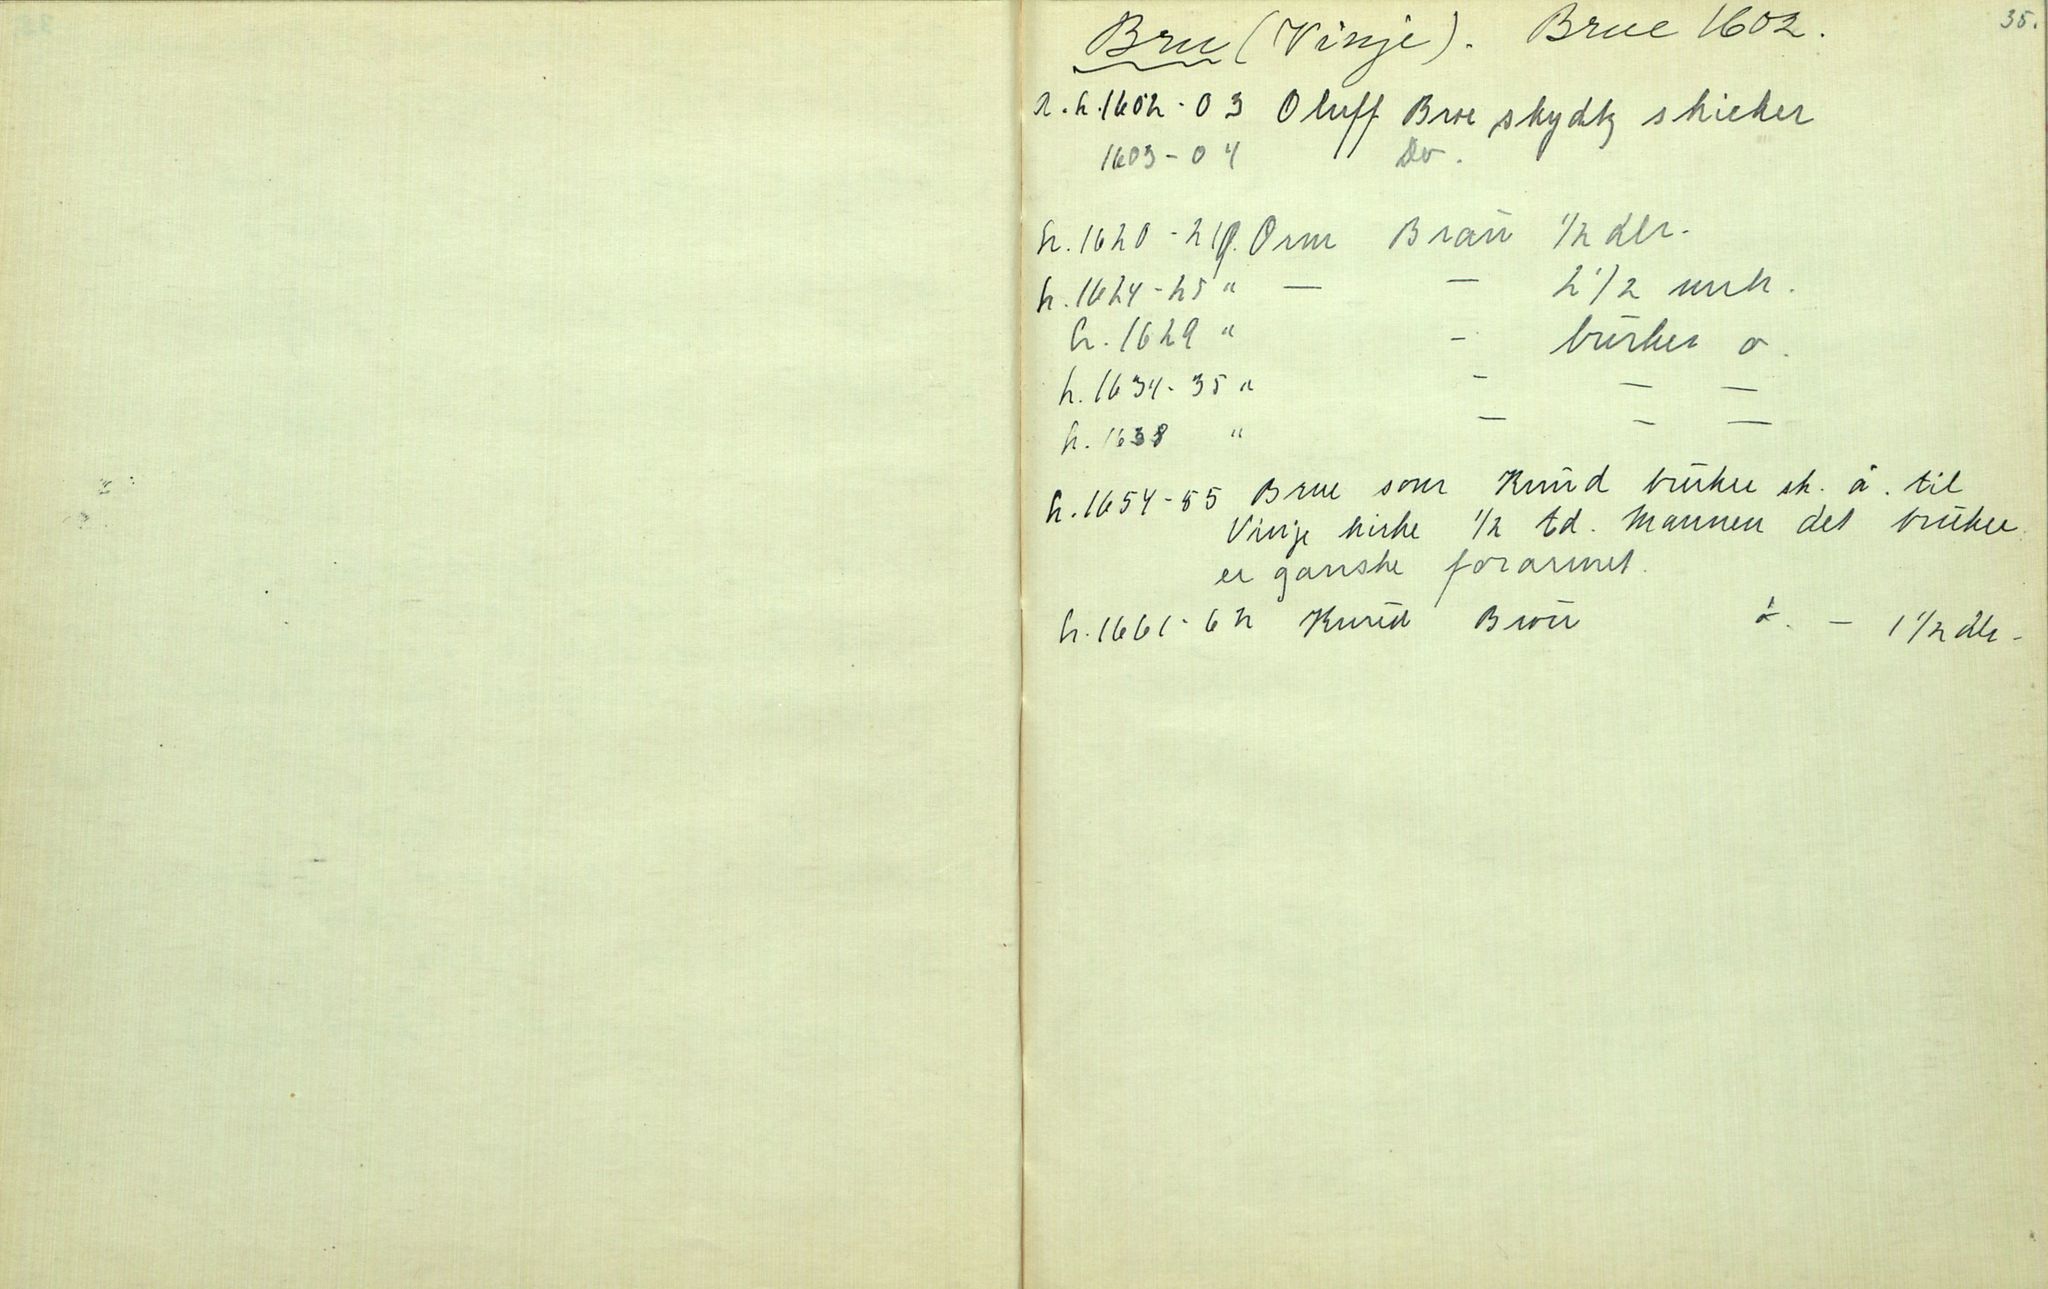 35.
Bru (Vinje). Brue 1602.
r. h. 1602-03 Oluff Broe skydtz skicker
1603-04 Do.
h. 1620-21 Orm Braú 1/2 dlr.
h. 1624-25 " — — 2 1/2 mrk.
h. 1629 " - brúker ø.
h. 1634-35 " - — —
h. 1638 " — - —
h. 1654-55 Brue som Knúd brúker sk. å. til
Vinje kirke 1/2 td. Mannen det brúker
er ganske forarmet.
h. 1661-62 Knúd Broú å. — 1 1/2 dlr-